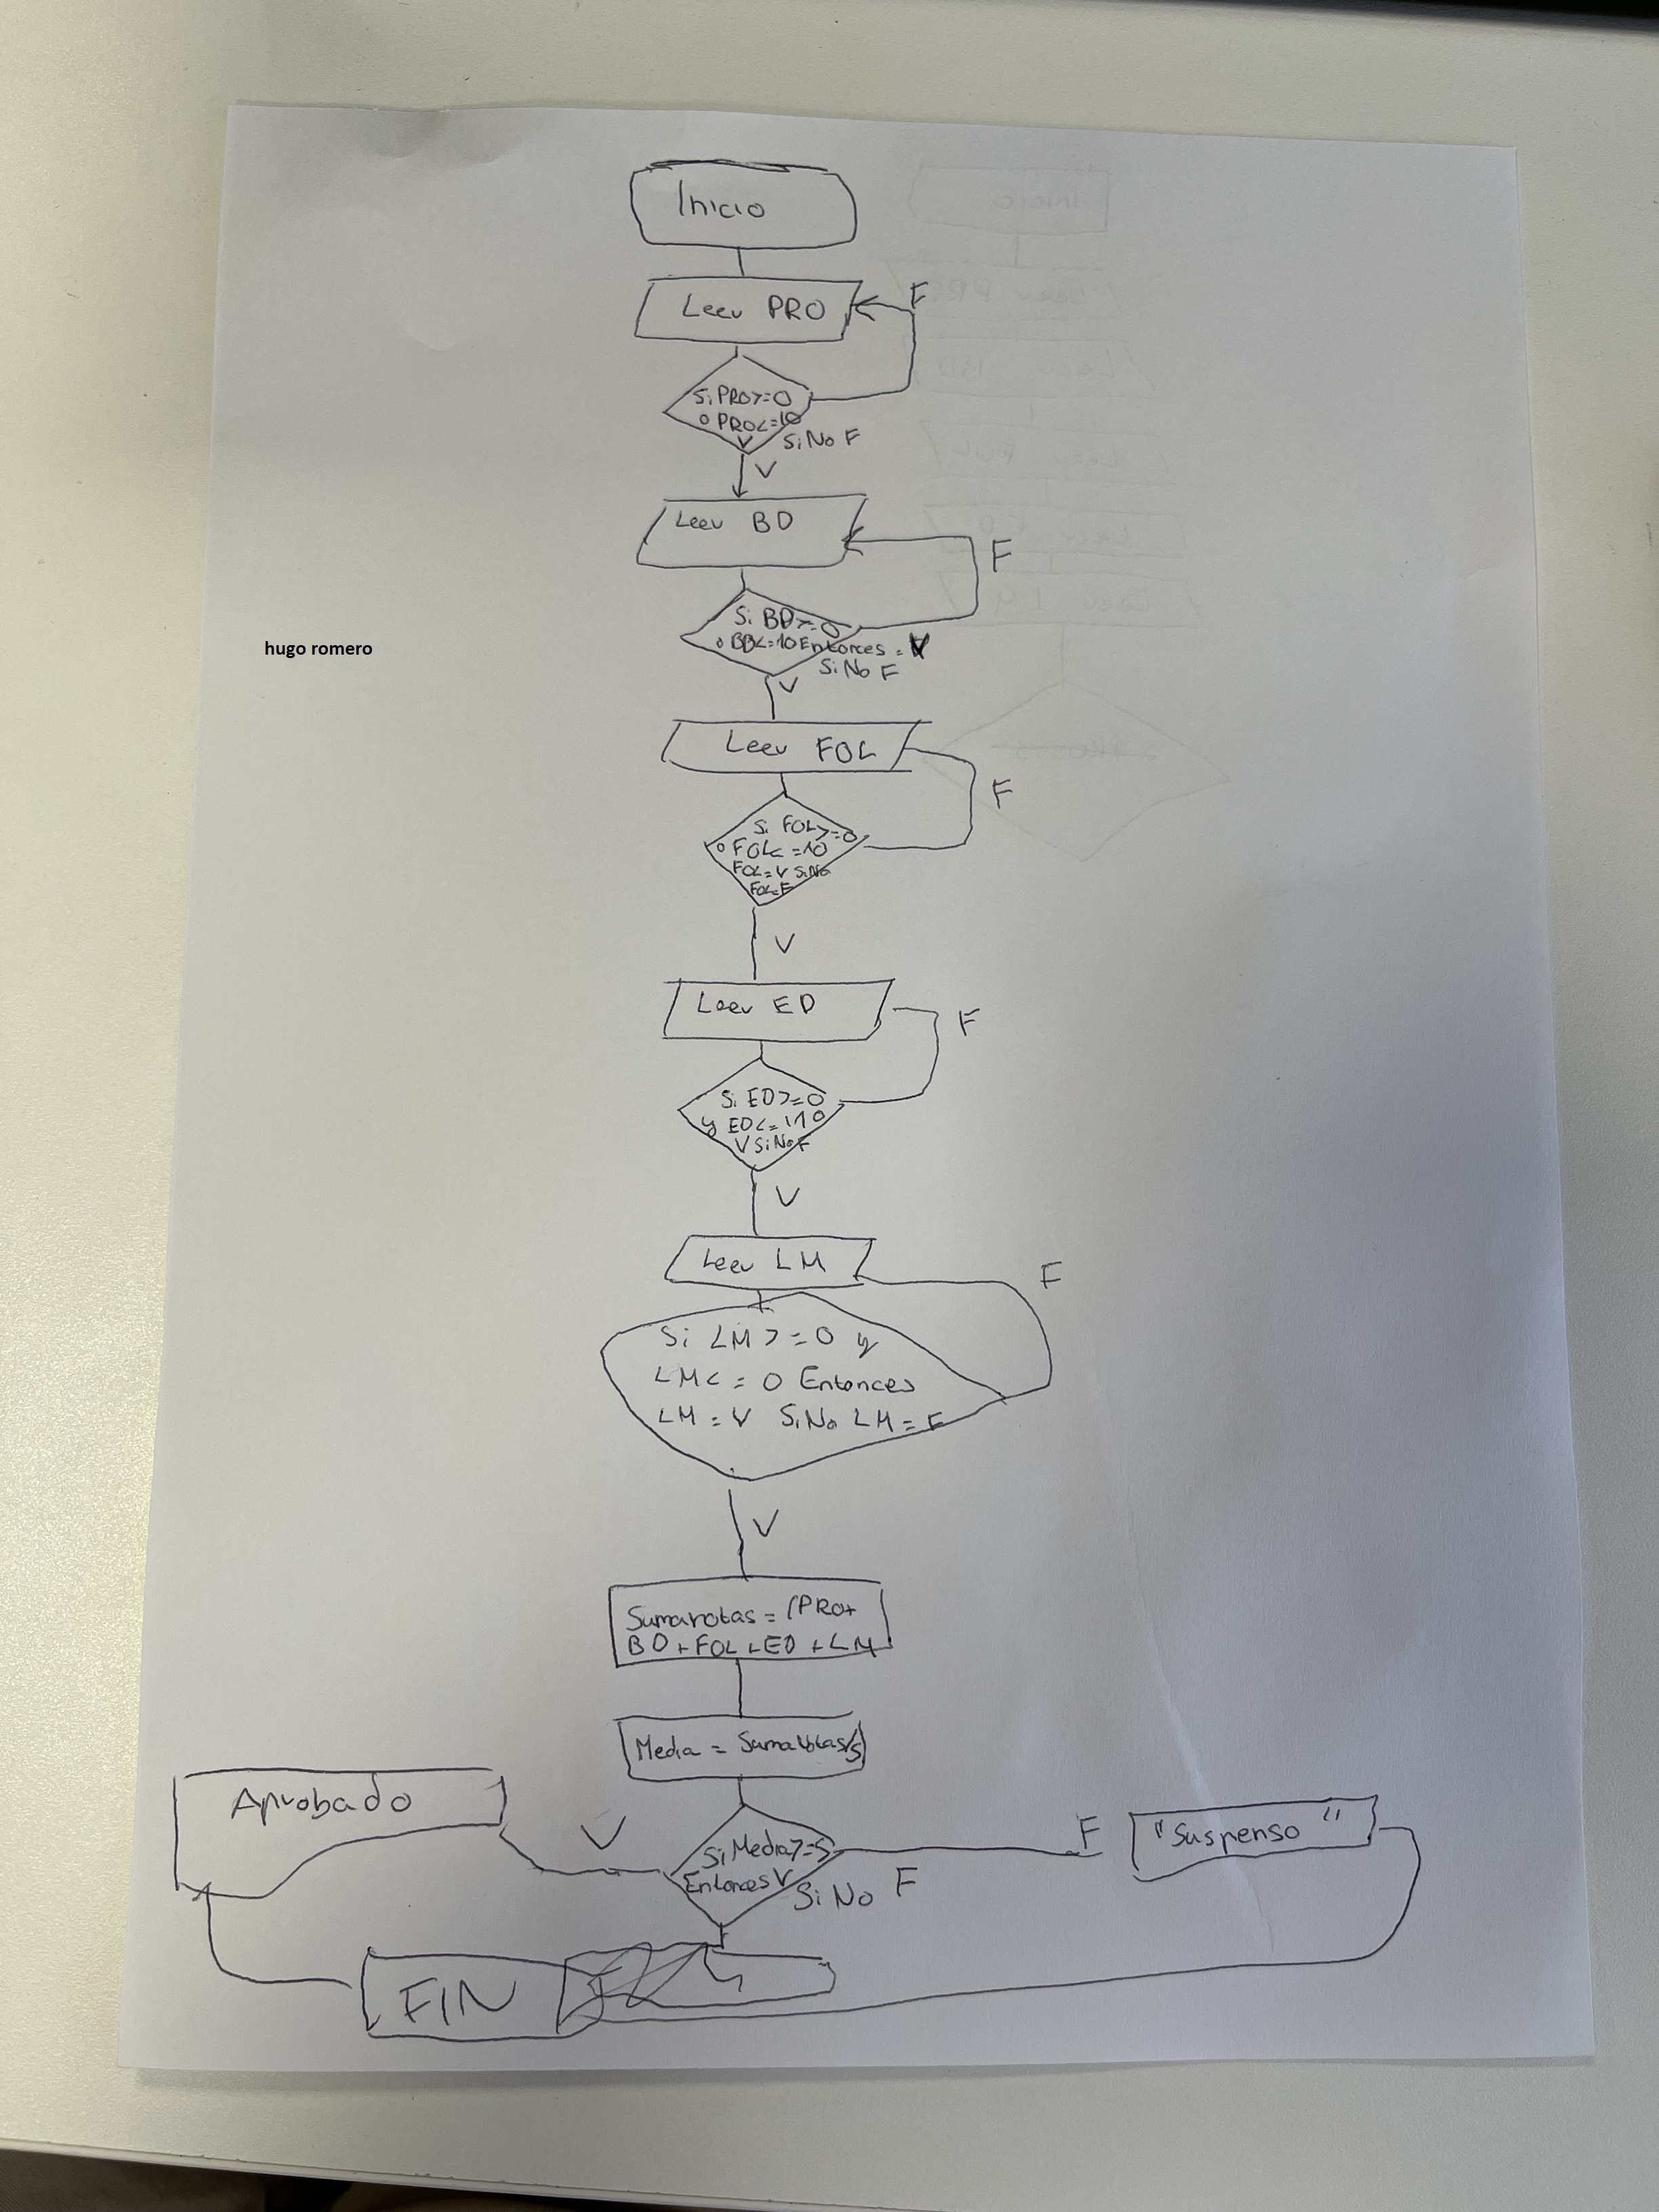 Inicio
Leer PRO
F
Si PRO>=0
o PRO<=10
V
SiNo F
V
Leer BD
F
Si BD>=0
o BB<=10 Entonces = V
SiNo F
V
hugo romero
Leer FOL
F
Si FOL>=0
o FOL<=10
FOL=V SiNo
FOL=F
V
Leer ED
F
Si ED>=0
y ED<=10
V SiNo F
V
Leer LM
F
Si LM>=0 y
LM<=0 Entonces
LM=V SiNo LM=F
V
Sumanotas = (PRO+
BD+FOL+ED+LM
Media = Sumanotas/5
Aprobado
V
Si Media>=5
Entonces V
SiNo F
F
"Suspenso"
FIN